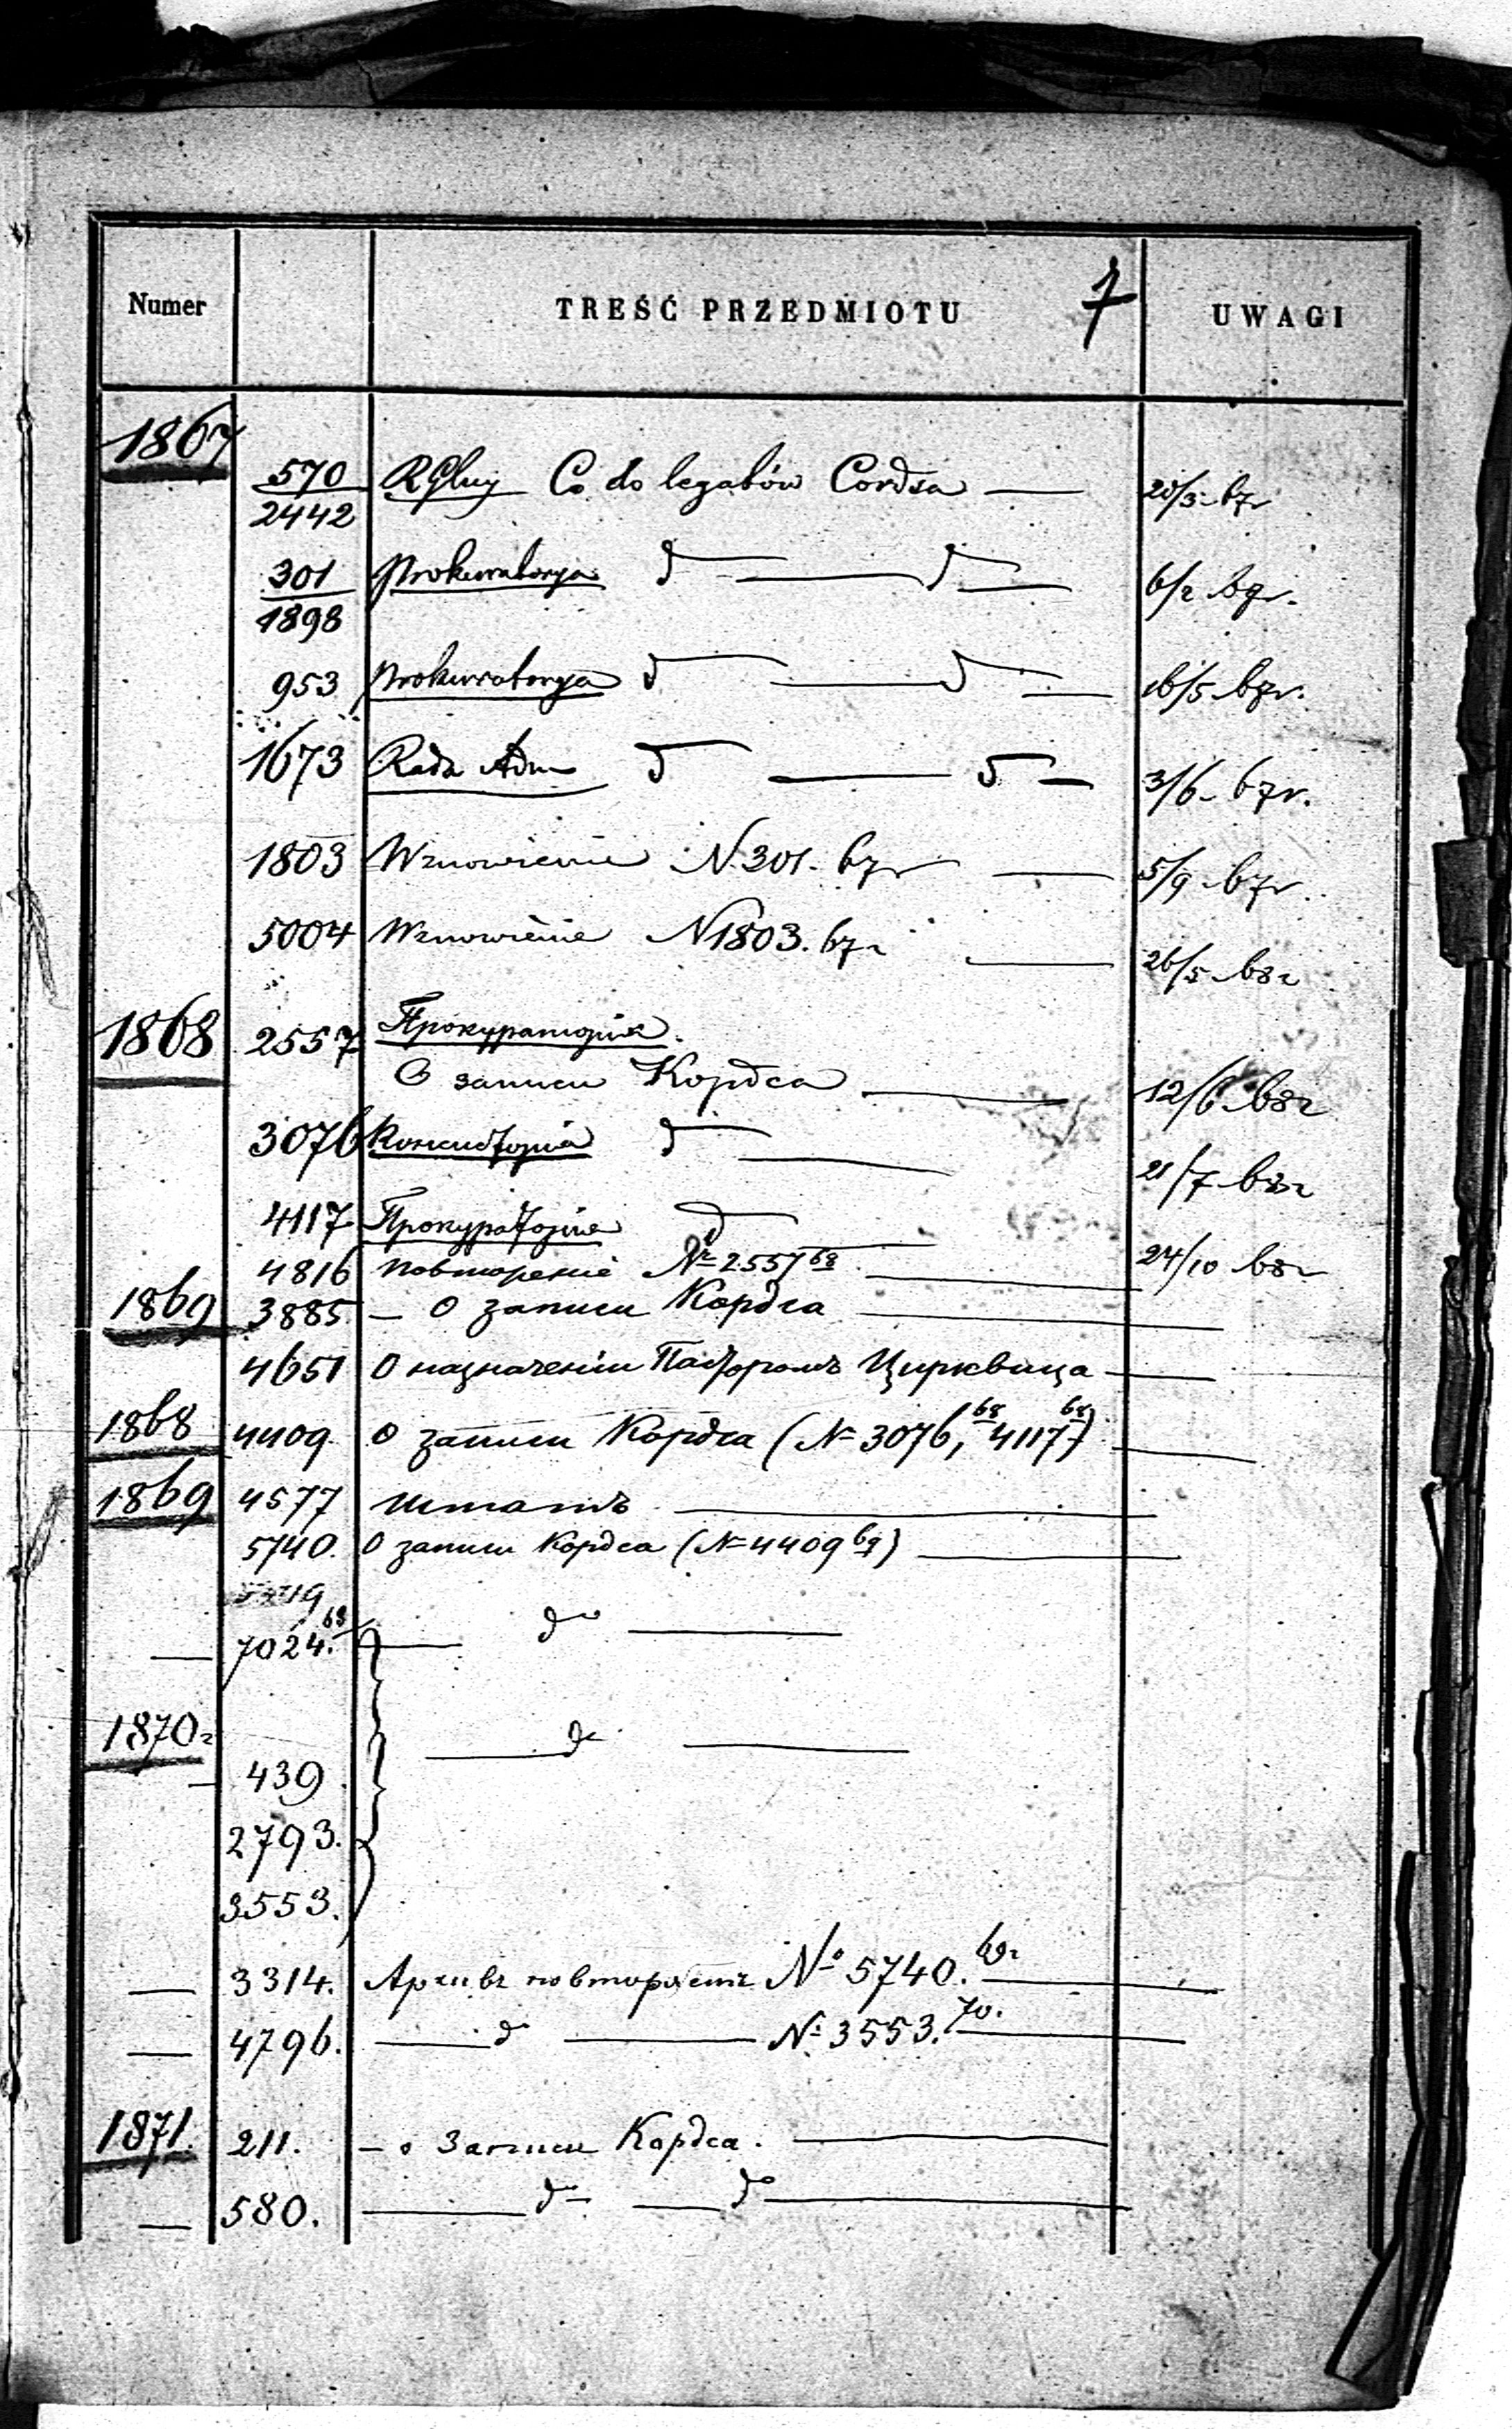 Numer TREŚĆ PRZEDMIOTU 7 UWAGI
1867
570 RGłny Co do legatów Cordsa 20/3 67r
2442
301 Prokuratorya d d 6/2 69r.
1898
953 Prokuratorya d d 16/5 67r.
1673 Rada Adm d d 3/6 67r.
1803 Wznowienie N. 301. 67r 5/9 67r.
5004 Wznowienie N 1803. 67r 26/5 68r
1868 2557 Прокураторія.
О записи Кордса 12/6 68г
3076 Консисторія d 21/7 68г
4117 Прокураторія d 24/10 68г
4816 повтореніе № 2557 68
1869 3885 — О записи Кордса
4651 О назначеніи Пасторомъ Цирквица
1868 4409 О записи Кордса (№ 3076, 68 4117 68)
1869 4577 штатъ
5740. О записи Кордса (№ 4409 69)
— 7024. do
1870г do
— 439
2793.
3553.
— 3314. Архивъ повторяетъ № 5740. 69г
— 4796. d № 3553. 70.
1871. 211. — о Записи Кордса.
— 580. do do